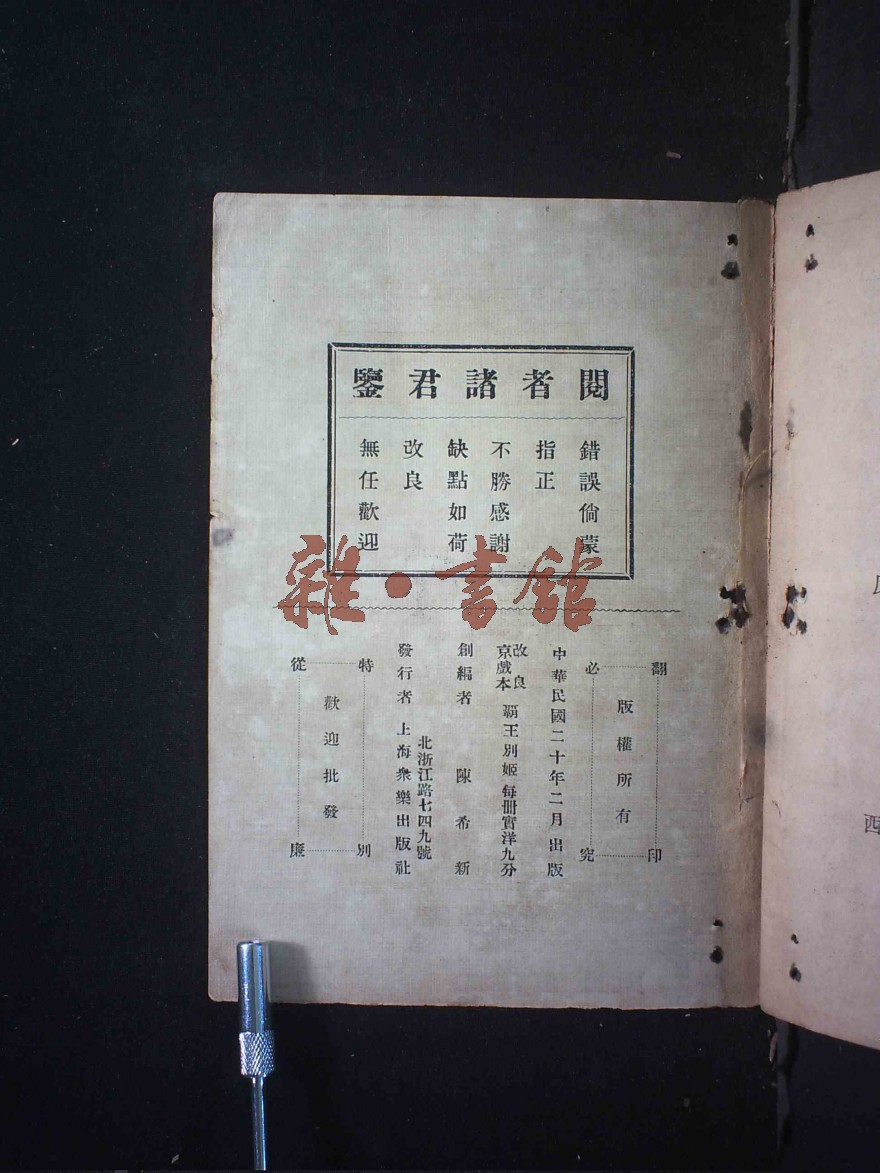 閱者諸君鑒
錯誤倘蒙
指正
不勝感謝
缺點如荷
改良
無任歡迎
雜·書館
翻印必究
版權所有
中華民國二十年二月出版
改良京戲本 霸王別姬 每冊實洋九分
創編者 陳希新
北浙江路七四九號
發行者 上海衆樂出版社
特別從廉
歡迎批發
西